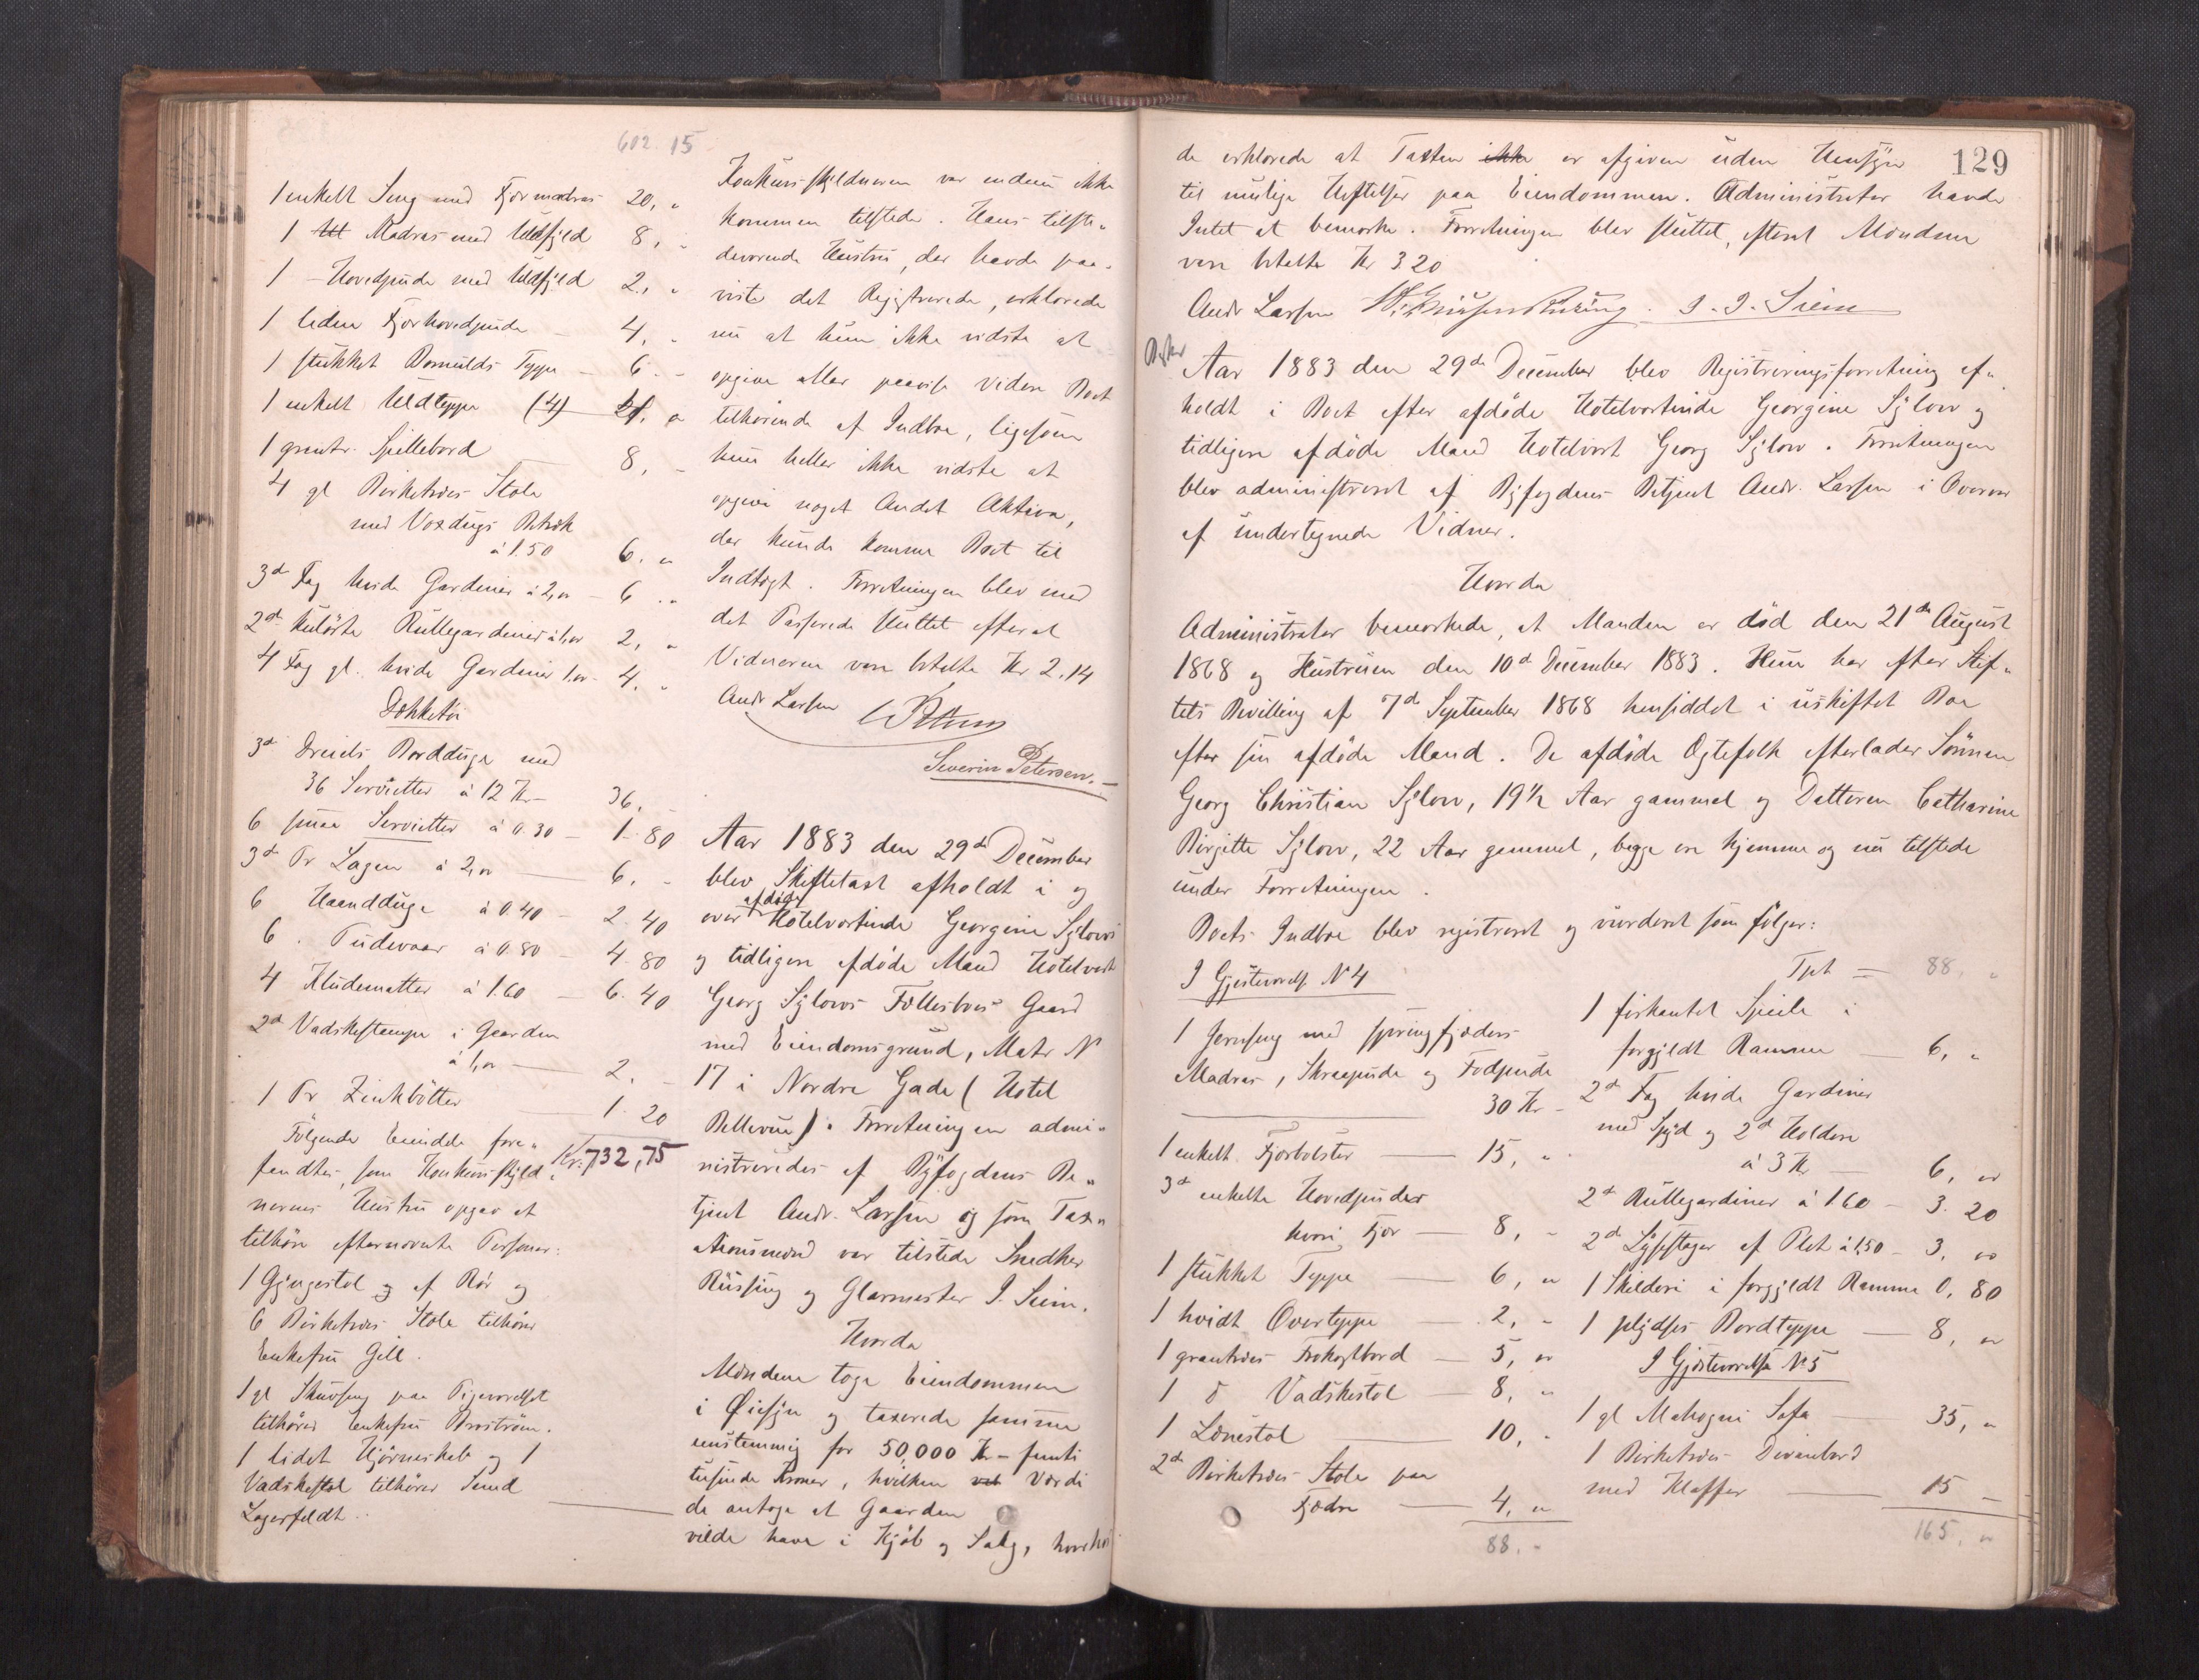 602. 15
1 enkelt Seng med Fjærmadras 20, „
1 Madras med Uldfyld 8, „
1 – Hovedpude med Uldfyld 2, „
1 liden Fjærhovedpude – 4, „
1 stukket Bomulds Teppe – 6 – „
1 enkelt Uldteppe (4) „
1 grantr. Spillebord – 8, „
4 gl Birketræs Stole
med Voxdugs Betræk
à 1.50 6. „
3de Fag hvide Gardiner à 2,oo – 6 . „
2de kulörte Rullegardiner à 1,oo 2, „
4 Fag gl. hvide Gardiner 1.oo 4. „
Dækketøi
3de Dreiels Borddüge med
36 Servietter à 12 Kr – 36. –
6 smaa Servietter à 0.30 – 1– 80
3de Pr Lagen à 2,oo – 6. –
6 Haandduge à 0.40 – 2. 40
6 . Pudevaar à 0.80 – 4. 80
4 Kludematter à 1.60 – 6. 40
2de Vadskestampe i Gaarden
à 1,oo – 2. –
1 Pr Zinkbøtter 1. 20
Kr. 732, 75
Følgende Eiendele fore„
fandtes, som Konkursskyld„
nerens Hustru opgav at
tilhöre efternævnte Personer:
1 Gyngestol af Rör og
6 Birketræs Stole tilhörer
Enkefru Gill.
1 gl Skuvseng paa Pigeværelset
tilhörer Enkefru Broström.
1 lidet Hjørneskab og 1
Vadskestol tilhörer Smed
Lagerfeldt.
Konkursskyldneren var endnu ikke
kommen tilstede. Hans tilste„
deværende Hustru, der havde paa„
vist det Registrerede, erklærede
nu at hun ikke vidste at
opgive eller paavise videre Boet
tilhörende af Indboe, ligesom
hun heller ikke vidste at
opgive noget Andet Aktiva,
der kunde komme Boet til
Indtægt. Forretningen blev med
det Passerede sluttet efterat
Vidnerne vare betalte Kr 2.14
Andr Larsen
Severin Petersen. –
Aar 1883 den 29de December
blev Skiftetaxt afholdt i og
over afdøde Hotelvertinde Georgine Sylows
og tidligere afdøde Mand Hotelvert
Georg Sylows Fællesboes Gaard
med Eiendomsgrund, Matr N
17 i Nordre Gade (Hotel
Bellevue). Forretningen admi„
nistreredes af Byfogdens Be„
tjent Andr. Larsen og som Tax„
ationsmænd var tilstede Snedker
Rüssing og Glarmester J. Siem.
Hvorda
Mændene toge Eiendommen
i Øiesyn og taxerede samme
enstemmig for 50,000 Kr – femti
tusinde Kroner, hvilken Værdi
de antoge at Gaarden
vilde have i Kjøb og Salg, hvorhos
129
de erklærede at Taxten ikke er afgiven uden Hensyn
til mulige Heftelser paa Eiendommen. Administrator havde
Intet at bemærke. Forretningen blev sluttet, efterat Mændene
vare betalte Kr 3 20
Andr Larsen J. J. Siem
Aar 1883 den 29de December blev Registreringsforretning af„
holdt i Boet efter afdøde Hotelvertinde Georgine Sylow og
tidligere afdøde Mand Hotelvert Georg Sylow. Forretningen
blev administreret af Byfogdens Betjent Andr. Larsen i Overvær
af undertegnede Vidner.
Hvorda
Administrator bemærkede, at Manden er död den 21de August
1868 og Hustruen den 10de December 1883. Hun har efter Stif„
tets Bevilling af 7de September 1868 hensiddet i uskiftet Boe
efter sin afdøde Mand. De afdøde Ægtefolk efterlader Sønnen
Georg Christian Sylow, 19½ Aar gammel og Datteren Catharine
Birgitte Sylow, 22 Aar gammel, begge ere hjemme og nu tilstede
under Forretningen.
Boets Indboe blev registreret og vurderet som følger:
I Gjesteværelse N 4
1 Jernseng med springfjeders
Madras, Skraapude og Fodpude
30 Kr –
1 enkelt Fjærbolster – 15, „
3de enkelte Hovedpuder
hvori Fjær – 8, „
1 stukket Teppe – 6, „
1 hvidt Overteppe – 2, „
1 grantræs Frokostbord – 5, „
1 d Vadskestol – 8, „
1 Lænestol – 10, „
2de Birketræs Stole paa
Fjædre – 4, „
88. „
Tpt – 88, „
1 firkantet Speile i
forgyldt Ramme – 6, „
2de Fag hvide Gardiner
med Spyd og 2de Holdere
à 3 Kr – 6, oo
2de Rullegardiner à 1 60 – 3. 20
2de Lysestager af Plet à 1,50 – 3, oo
1 Skilderi i forgyldt Ramme 0, 80
1 plydses Bordteppe – 8, oo
I Gjesteværelse N 5
1 gl Mahogni Sofa – 35, „
1 Birketræs Divanbord
med Klaffer – 15 –
165, „